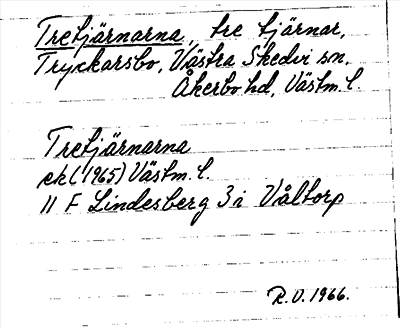 Tretjärnarna, tre tjärnar,
Tryckarsbo, Västra Skedvi sn,
Åkerbo hd, Västm. l.
Tretjärnarna
ek (1965) Västm. l.
11 F Lindesberg 3 i Våltorp
R.O. 1966.